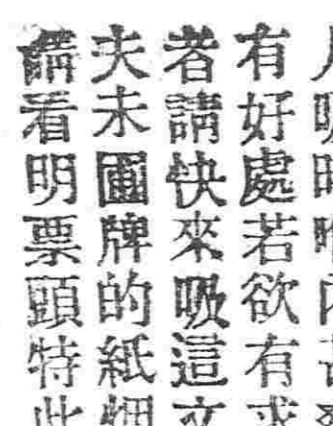 有好處若欲有求
者請快來吸這文
夫未圃牌的紙烟
看明票頭特此